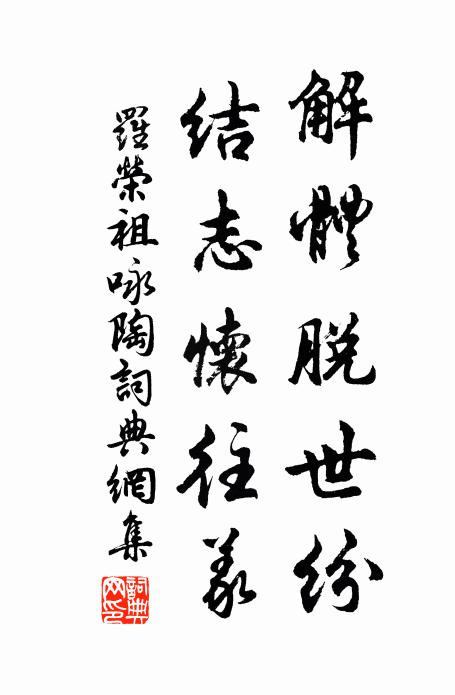 解體脫世紛
結志懷往義
羅榮祖詠陶詞典網集
詞典網印